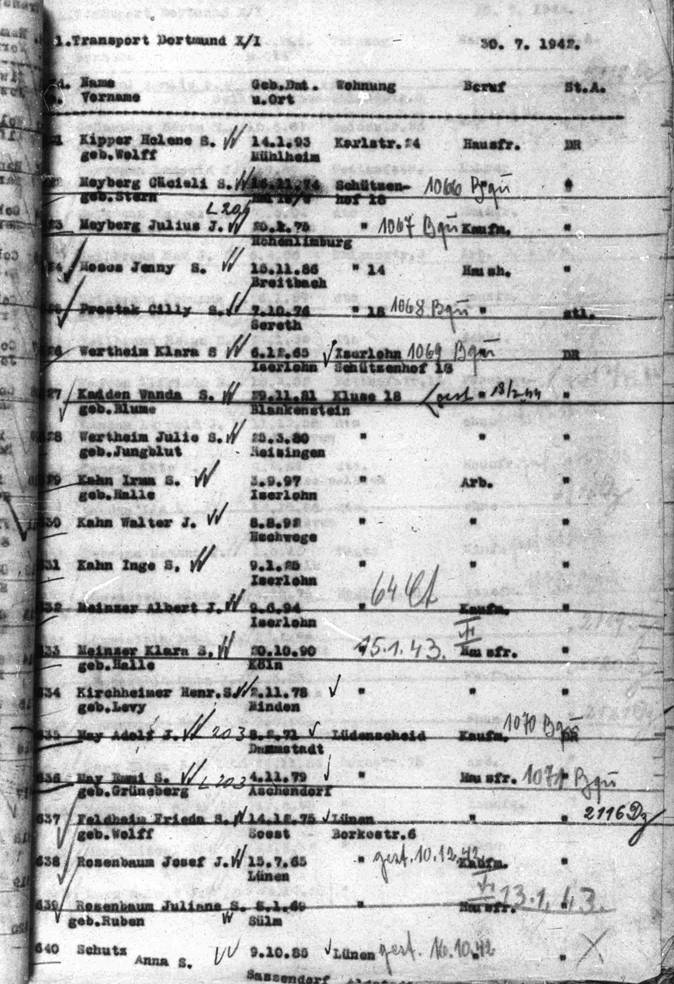 1.Transport Dortmund X/I 30. 7. 1942.
d. Name Geb.Dat. Wohnung Beruf St.A.
Vorname u.Ort
21 Kipper Helene S. W 14.1.93 Karlstr.24 Hausfr. DR
geb.Wolff Mühlheim
Meyberg Cäcieli S. W .11.74 Schützen- 1066 Bgü "
geb.Stern hof 18
L 206
23 Meyberg Julius J. W .75 " 1067 Bgü Kaufm. "
Hohenlimburg
24 Moses Jenny S. W 15.11.86 " 14 Haush. "
Breitbach
Prostak Cilly S. W 7.10.76 " 18 1068 Bgü " stl.
Sereth
26 Wertheim Klara S W 6.12.65 Iserlohn 1069 Bgü DR
Iserlohn Schützenhof 18
27 Kadden Wanda S. W 29.11.81 Kluse 18 gest " 18/2.44 "
geb.Blume Blankenstein
28 Wertheim Julie S. W 25.3.80 " " "
geb.Jungblut Heisingen
29 Kahn Irma S. W 3.9.97 " Arb. "
geb.Halle Iserlohn
630 Kahn Walter J. W 8.8.92 " " "
Eschwege
631 Kahn Inge S. W 9.1.25 " " "
Iserlohn
64
632 Meinzer Albert J. W 9.6.94 " Kaufm. "
Iserlohn
633 Meinzer Klara S. W 20.10.90 15.1.43. VI Hausfr. "
geb.Halle Köln
634 Kirchheimer Henr.S. W 2.11.78 " " "
geb.Levy Minden
635 May Adolf J. W 203 .71 Lüdenscheid Kaufm. 1070 Bgü DR
Dammstadt
636 May Rumi S. W L 203 4.11.79 " Hausfr. 1071 Bgü "
geb.Grüneberg Aschendorf
637 Feldheim Frieda S. W 14.12.75 Lünen " " 2116 Dz
geb.Wolff Soest Borkestr.6
638 Rosenbaum Josef J. W 15.7.65 " gest. 10.12.42 Kaufm. "
Lünen
639 Rosenbaum Juliane S. 8.1.69 " Hausfr. 13.1.43. "
geb.Ruben W Sülm
640 Schutz W 9.10.85 Lünen gest. 16.10.42 " "
Anna S.
Sassendorf